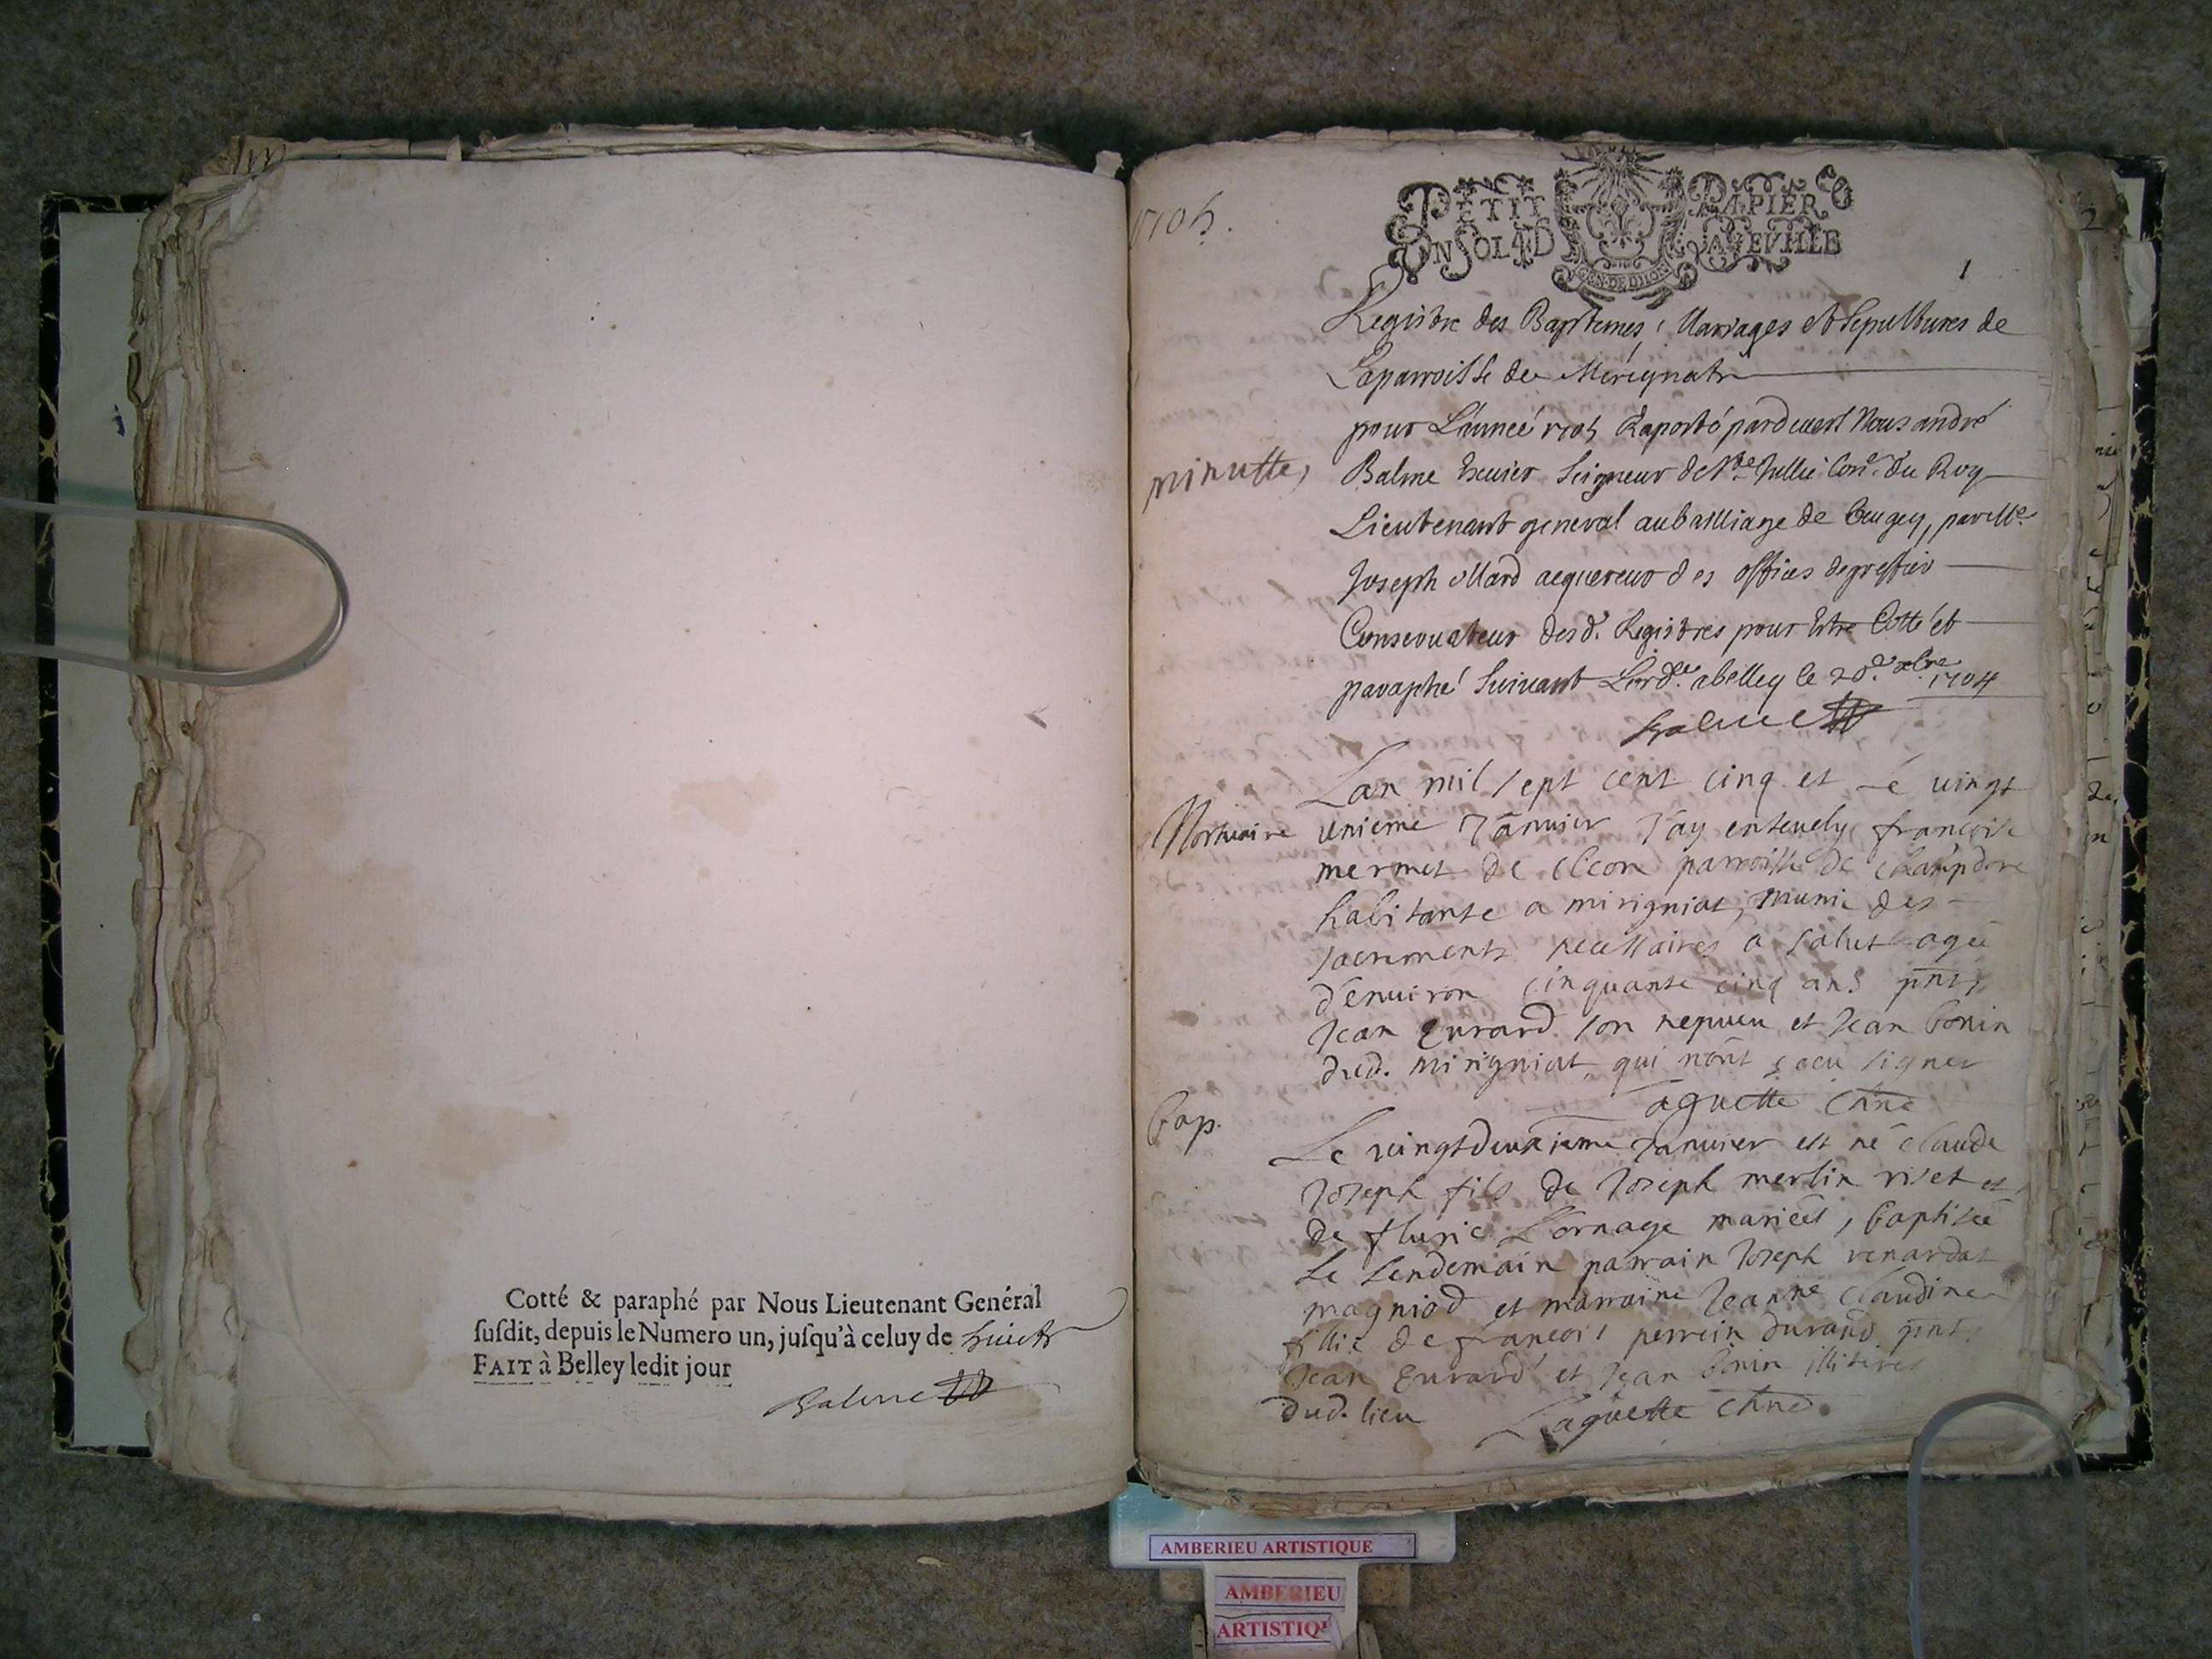 Cotté & paraphé par Nous Lieutenant Genéral
suſdit, depuis le Numero un, juſqu'à celuy de huict
FAIT à Belley ledit jour
Balme
1705.
PETIT PAPIER
UN SOL 4 D LA FEVILLE
GEN. DE DIION
1
Registre des Baptemes, Mariages et Sepultures de
La parroisse de Merignat
pour L'année 1705 Raporté pardevert Nous andré
minutte,
Balme Escuier Seigneur de Ste Jullie Conr. du Roy
Lieutenant general au bailliage de Bugey, par Me.
Joseph ollard acquereur des offices de greffier
Conservateur desd. Registres pour Estre Cotté et
paraphé Suivant Lorde. a belley le 20e. xbre 1704
Balme
Lan mil sept cent cinq et le vingt
Mortuaire
unieme Janvier J'ay entevely francoise
mermet de cleon parroisse de champdore
habitante a mirigniat, munie des
sacrements necessaires a salut agée
d'environ cinquante cinq ans pnts,
Jean Eurard son nepveu et Jean bonin
dud. mirigniat, qui n'ont sceu signer
Laguette Cure
bap.
Le vingtdeuxieme Janvier est né claude
Joseph fils de Joseph merlin rivet et
de flurie Lornage mariéé, baptiséé
le lendemain parrain Joseph renardat
magniod et marraine Jeanne claudine
fillie de francois perrein durand pnts,
Jean Eurard et Jean bonin illitirés
dud. lieu Laguette Cure
2
AMBERIEU ARTISTIQUE
AMBERIEU
ARTISTIQU